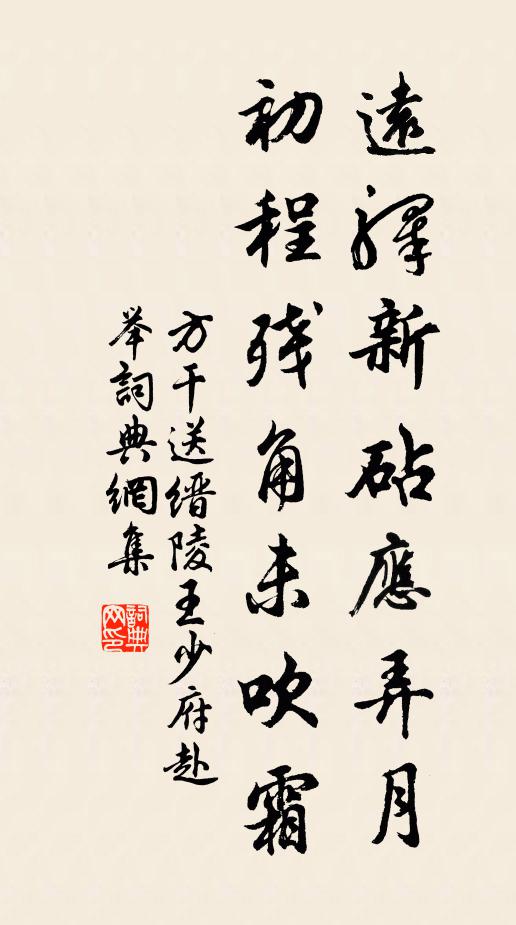 遠驛新砧應弄月
初程殘角未吹霜
方干送缙陵王少府赴
举詞典網集
詞典
网印